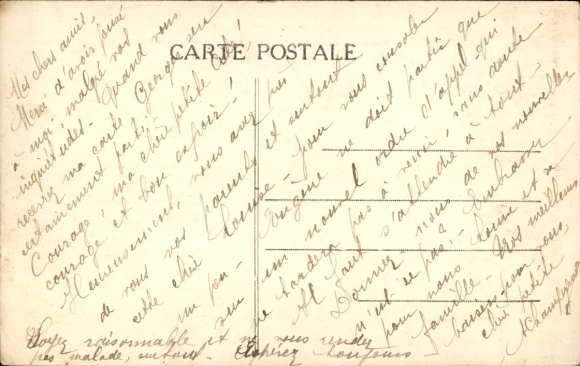 CARTE POSTALE
Mes chers amis -
Merci d'avoir pensé
à moi, malgré vos
inquiétudes - Quand vous
recevrez ma carte Georges sera
certainement parti -
Courage, ma chère petite Cécile!
courage et bon espoir!
Heureusement, vous avez pas
de vous vos parents et surtout
cette chère Louise - pour vous consoler
un peu -
Eugène ne doit partir que
sur un nouvel ordre d'appel qui
ne tardera pas à venir, sans doute
Il faut s'attendre à tout -
Donnez nous de vos nouvelles
n'est-ce pas! - Embrassez
pour nous Louise et sa
famille - Nos meilleurs
baisers pour vous
chère petite
Soyez raisonnable et ne vous rendez
pas malade, surtout - Espérez toujours -